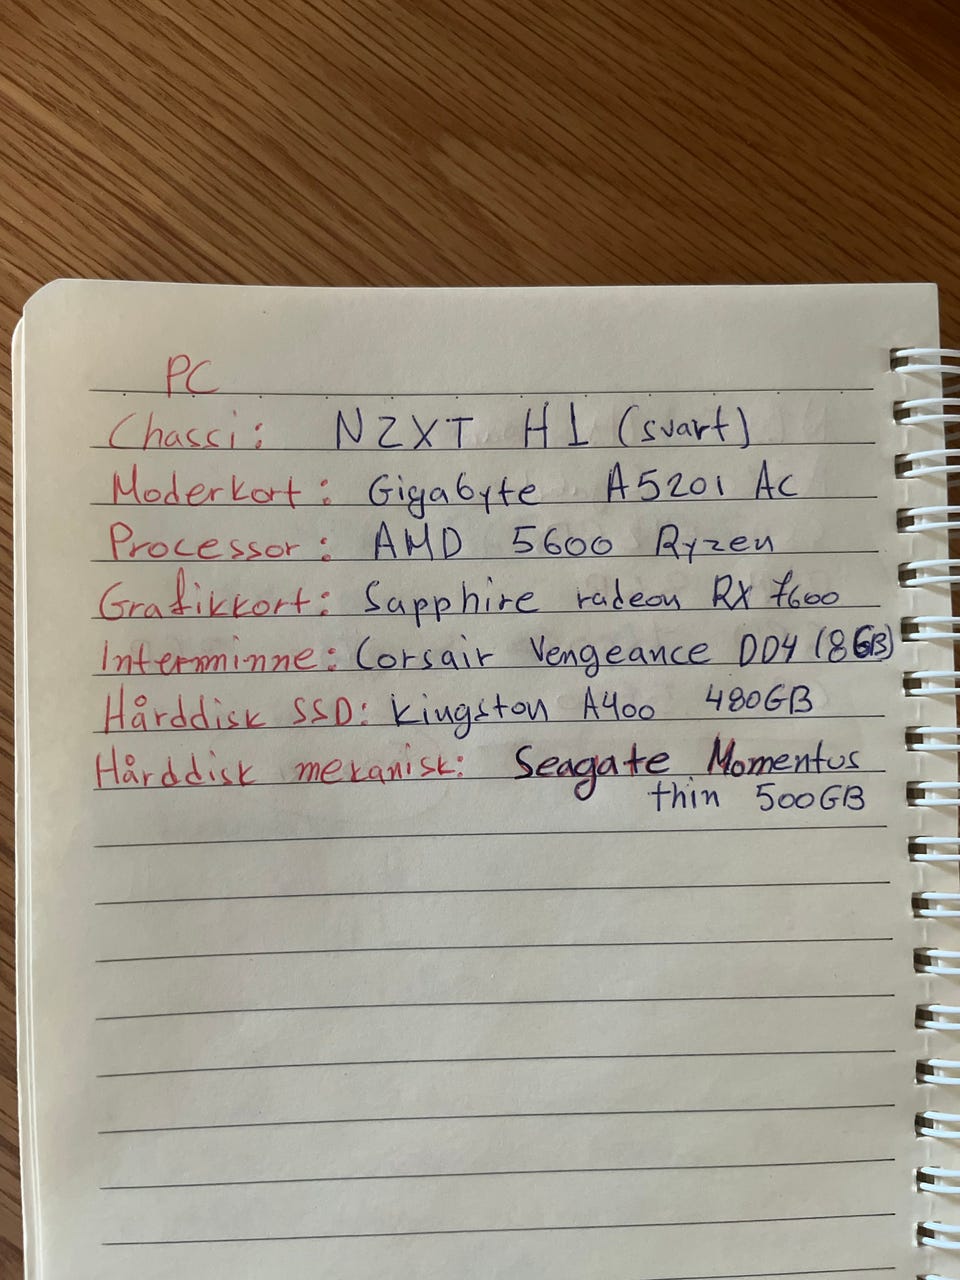 PC
Chassi: NZXT H1 (svart)
Moderkort: Gigabyte A520I AC
Processor: AMD 5600 Ryzen
Grafikkort: Sapphire radeon RX 7600
Internminne: Corsair Vengeance DD4 (8GB)
Hårddisk SSD: Kingston A400 480GB
Hårddisk mekanisk: Seagate Momentus
thin 500GB